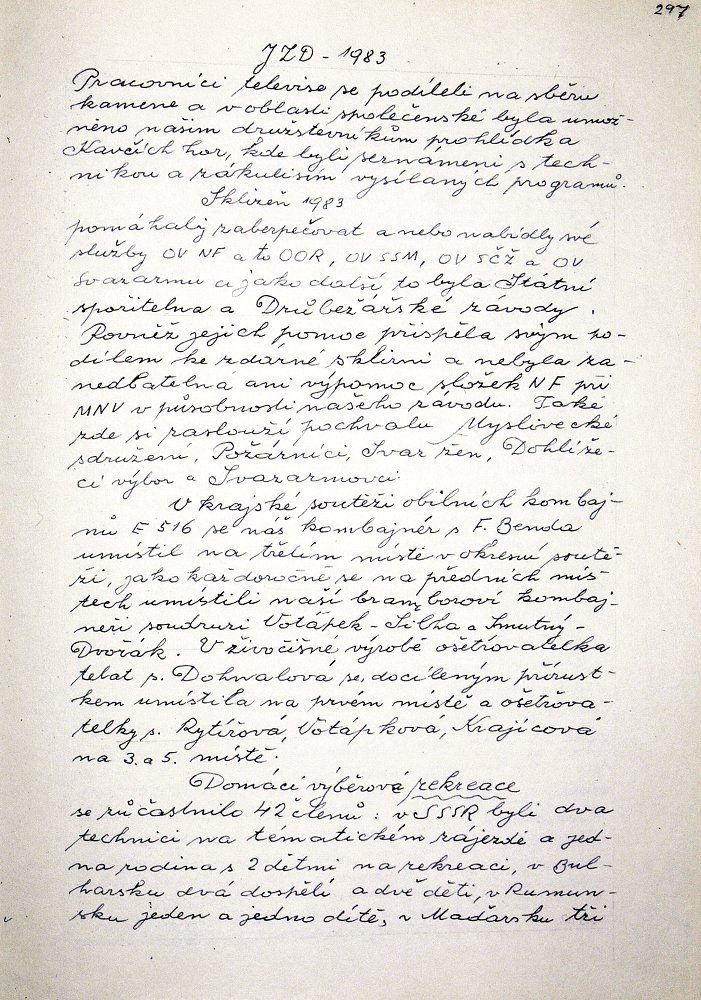 297
JZD - 1983
Pracovníci televise se podíleli na sběru
kamene a v oblasti společenské byla umož-
něno našim družstevníkům prohlídka
Kavčích hor, kde byli seznameni s tech-
nikou a zákulisím vysílaných programů.
Sklizeň 1983
pomáhaly zabezpečovat a nebo nabídly své
služby OV NF a to OOR, OV SSM, OV SČŽ a OV
Svazarmu a jako další to byla Státní
spořitelna a Drůbežářské závody.
Rovněž jejich pomoc přispěla svým po-
dílem ke zdárné sklizni a nebyla za-
nedbatelná ani výpomoc složek NF při
MNV v působnosti našeho závodu. Také
zde si zaslouží pochvalu Myslivecké
sdružení, Požárníci, Svaz žen, Dohlíže-
cí výbor a Svazarmovci.
V krajské soutěži obilních kombaj-
nů E 516 se náš kombajnér s F. Benda
umístil na třetím místě v okresní soutě-
ži, jako každoročně se na předních mís-
tech umístili naší bramboroví kombaj-
neři soudruzi Votápek - Šilha a Smutný -
Dvořák. V živočišné výrobě ošetřovatelka
telat s. Dohnalová se docíleným přírust-
kem umístila na prvém místě a ošetřova-
telky s. Rytířová, Votápková, Krajícová
na 3. a 5. místě.
Domácí výběrové rekreace
se zůčastnilo 42 členů: v SSSR byli dva
technici na tématickém zájezdě a jed-
na rodina s 2 dětmi na rekreaci, v Bul-
harsku dvá dospělí a dvě děti, v Rumun-
sku jeden a jedno dítě, v Maďarsku tři